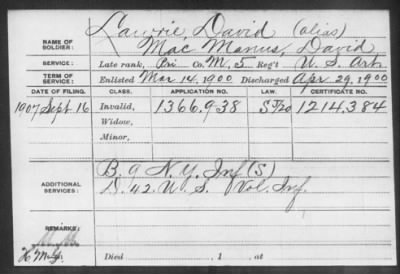 Lawrie, David (alias)
NAME OF SOLDIER: Mac Manus, David
SERVICE: Late rank, Pri Co. M, 5 Reg't U. S. Art.
TERM OF SERVICE: Enlisted Mar 14, 1900 Discharged Apr 29, 1900
DATE OF FILING. CLASS. APPLICATION NO. LAW. CERTIFICATE NO.
1907 Sept 16 Invalid, 1366.938 1214.384
Widow,
Minor,
ADDITIONAL SERVICES: B. 9 N. Y. Inf (S)
D. 42. U. S. Vol. Inf.
REMARKS:
Died , 1 , at